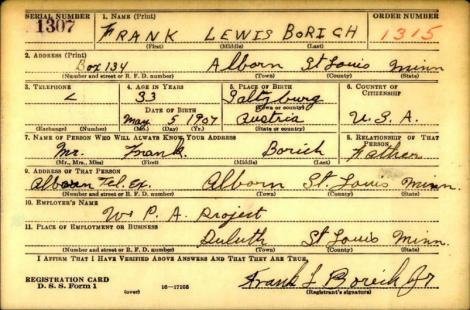 SERIAL NUMBER 1. NAME (Print) ORDER NUMBER
1307 FRANK LEWIS BORICH 1315
(First) (Middle) (Last)
2. ADDRESS (Print)
Box 134 Alborn St Louis Minn
(Number and street or R. F. D. number) (Town) (County) (State)
3. TELEPHONE 4. AGE IN YEARS 5. PLACE OF BIRTH 6. COUNTRY OF CITIZENSHIP
33 Saltzburg
DATE OF BIRTH (Town or county)
May 5 1907 Austria U.S.A.
(Exchange) (Number) (Mo.) (Day) (Yr.) (State or country)
7. NAME OF PERSON WHO WILL ALWAYS KNOW YOUR ADDRESS 8. RELATIONSHIP OF THAT PERSON
Mr. Frank Borich Father
(Mr., Mrs., Miss) (First) (Middle) (Last)
9. ADDRESS OF THAT PERSON
Alborn Tel. Ex. Alborn St Louis Minn.
(Number and street or R. F. D. number) (Town) (County) (State)
10. EMPLOYER'S NAME
W. P. A. Project
11. PLACE OF EMPLOYMENT OR BUSINESS
Duluth St Louis Minn.
(Number and street or R. F. D. number) (Town) (County) (State)
I AFFIRM THAT I HAVE VERIFIED ABOVE ANSWERS AND THAT THEY ARE TRUE.
REGISTRATION CARD Frank L Borich Jr
D. S. S. Form 1 (over) 16—17105 (Registrant's signature)